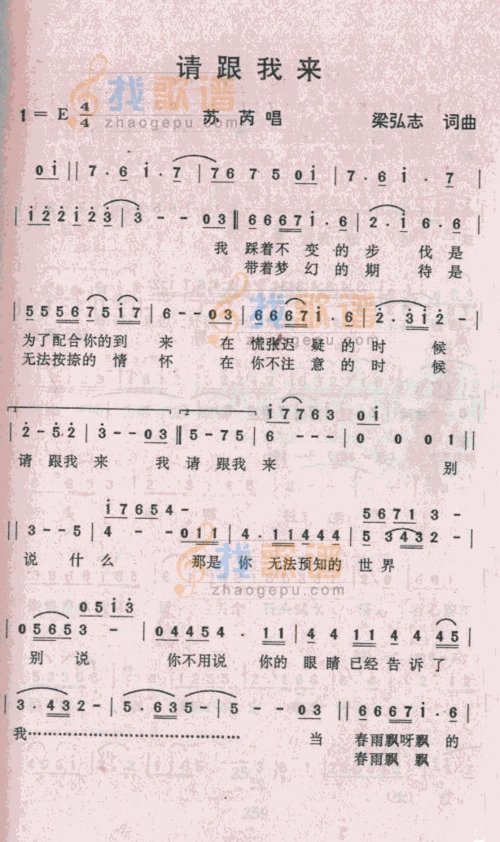 请跟我来
1=E 4/4 苏芮唱 梁弘志 词曲
找歌谱
zhaogepu.com
0 i || 7 · 6 i · 7 · | 7 6 7 5 0 i | 7 · 6 i · 7 |
我 踩着不变的步伐是
带着梦幻的期待是
找歌谱
zhaogepu.com
5 5 5 6 7 5 i 7 | 6 - - 0 3 | 6 6 6 7 i · 6 | 2 · 3 i 2 - |
为了配合你的到来 在慌张迟疑的时候
无法按捺的情怀 在你不注意的时候
1 2 i 7 7 6 3 0 i
| 2 - 5 2 | 3 - - 0 3 || 5 - 7 5 | 6 - - - | 0 0 0 1 ||
请跟我来 我请跟我来 别
i 7 6 5 4 - 5 6 7 1 3 -
|| 3 - - 5 | 4 - - 0 1 1 | 4 · 1 1 4 4 4 | 5 3 4 3 2 - |
说什么 那是你 无法预知的世界
找歌谱
zhaogepu.com
0 5 i 3
| 0 5 6 5 3 - | 0 4 4 5 4 · 1 1 | 3 5 4 4 1 1 4 4 5 |
别说 你不用说 你的眼睛已经告诉了
| 3 - 4 3 2 - | 5 · 6 3 5 - | 5 - - 0 3 || 6 6 6 7 i · 6 |
我……………………… 当 春雨飘呀飘的
春雨飘 飘